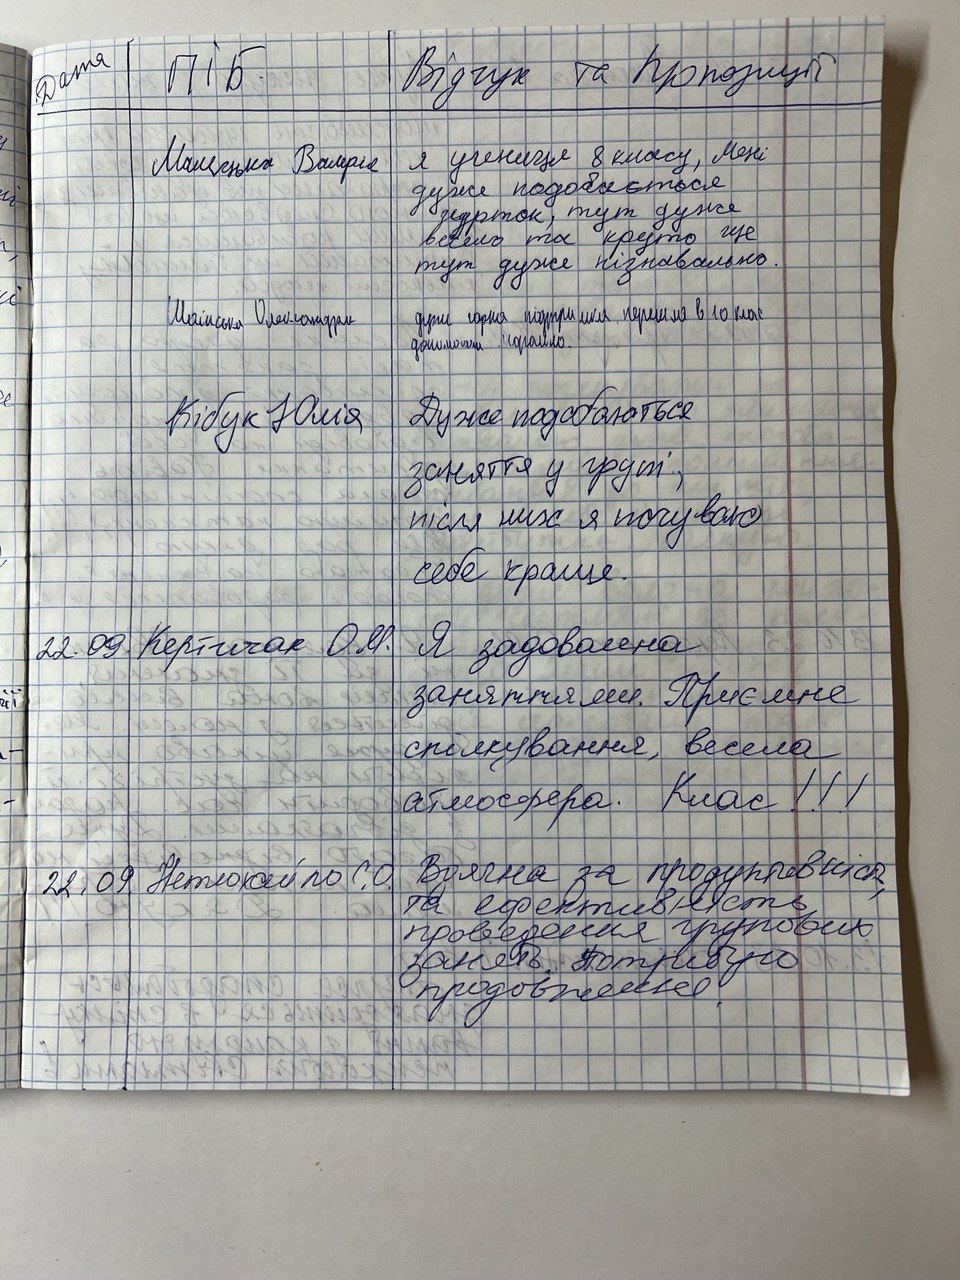 Дата ПІБ. Відгук та Пропозиції
Валерія я учениця 8 класу, мені
дуже подобається
гурток, тут дуже
весело та круто ще
тут дуже пізнавально.
Олександра дуже гарна підтримка, перейшла в 10 клас
допомогли
Кібук Юлія Дуже подобаються
заняття у групі,
після них я почуваю
себе краще.
22.09. Кертичак О.М. Я задоволена
заняттями. Приємне
спілкування, весела
атмосфера. Клас!!!
22.09 С.О. Вдячна за продуктивність
та ефективність
проведення групових
занять. Потрібно
продовження.